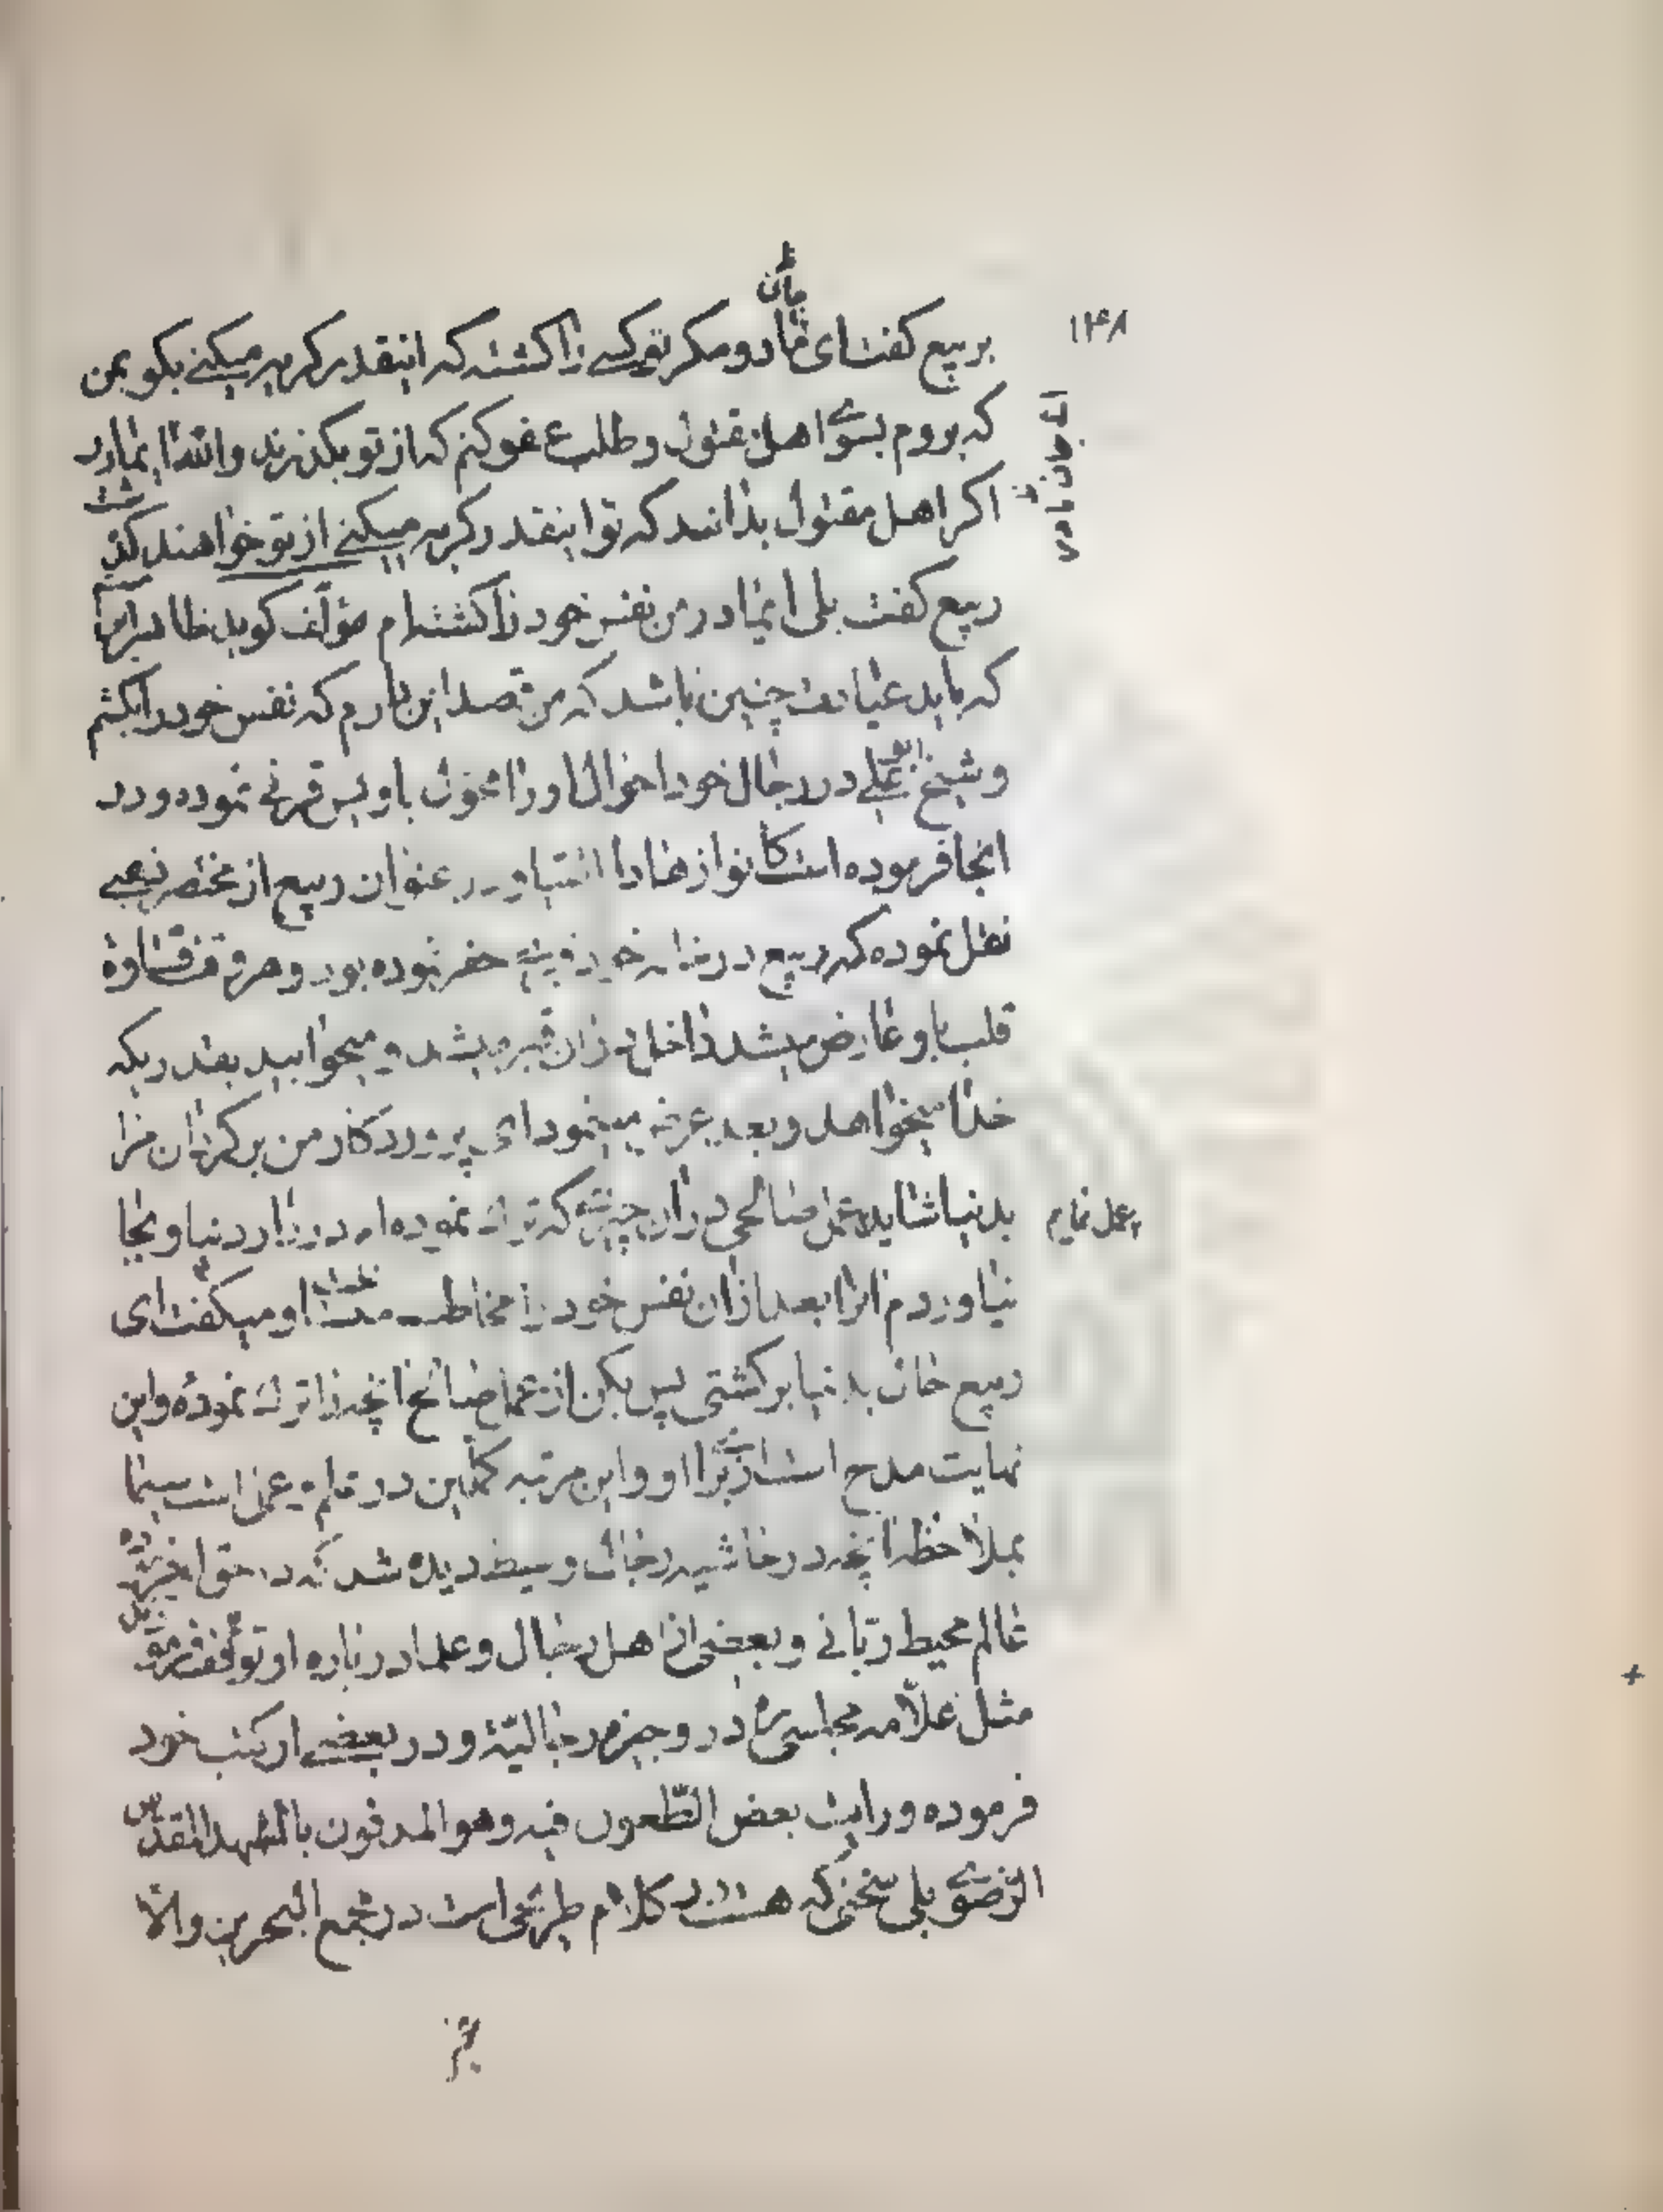 ۱۳۸
بربیع کفت ای جان مادر و مکر تو کسی را کشته که اینقدر کریه میکنی بکو بمن
که بروم بسوی اهل مقتول و طلب عفو کنم که از تو بکذرند والله ایمادر
اکر اهل مقتول بدانند که تو اینقدر کریه میکنی از تو خواهند کذشت
ربیع کفت بلی ایمادر من نفس خود را کشته‌ام مؤلف کوید ظاهرا
که باید عبارت چنین باشد که من قصد این دارم که نفس خود را بکشم
و شیخ ابو علی در رجال خود احوال او را محول باویس قرنی نموده و در
انجا فرموده است کانوا زهادا اتقیا و در عنوان ربیع از مختصر ذهبی
نقل نموده که ربیع در خانه خود قبری حفر نموده بود و هر وقت قساوة
قلب باو عارض میشد داخل در ان قبر میشد و میخوابید بقدریکه
خدا میخواهد و بعد عرض مینمود ای پروردکار من برکردان مرا
بدنیا شاید عمل صالحی در ان چیزی که ترک نموده‌ام در دار دنیا و بجا
بعمل نمایم
نیاوردم انرا بعد از ان نفس خود را مخاطب میساخت او میکفت ای
ربیع حال بدنیا برکشتی پس بکن از عمل صالح انچه را ترک نمودهٔ و این
نهایت مدح است از برای او و این مرتبه کاملین در علم و عمل است سیما
بملاحظه انچه در حاشیه رجال وسیط دیده شد که در حق او
عالم محیط ربّانی و بعضی از اهل رجال و علما در باره او توقف
مثل علّامه مجلسی ره در وجیزه رجالیّه و در بعضی از کتب خود
فرموده و رایت بعض الطّعون فیه و هو المدفون بالمشهد المقدس
الرضوی بلی سخنی که هست در کلام طریحی است در مجمع البحرین والّا